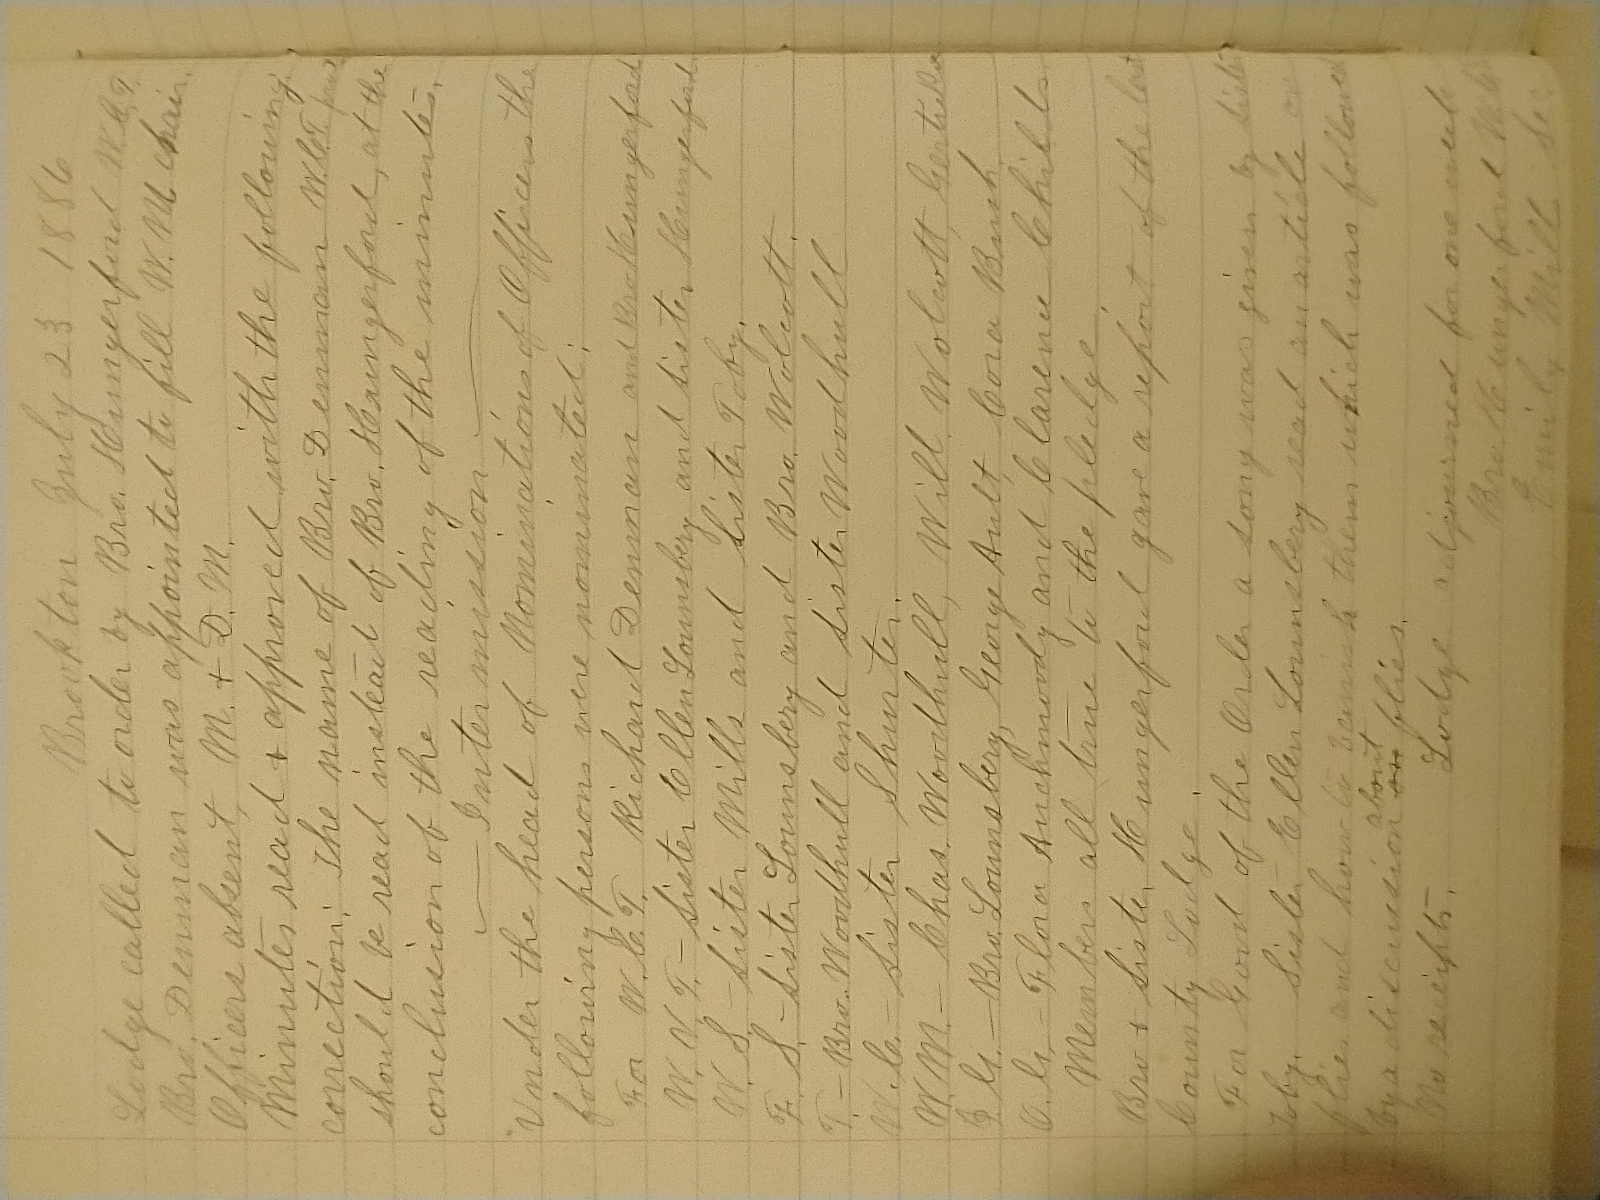 Brookton July 23 1886
Lodge called to order by Bro. Hungerford W.C.T.
Bro. Denman was appointed to fill W.M. chair.
Officers absent, M. + D.M.
Minutes read + approved with the following
correction: The name of Bro. Denman W.C.T. pro
should be read instead of Bro. Hungerford, at the
conclusion of the reading of the minutes.
Intermission
Under the head of Nominations of Officers the
following persons were nominated;
For W.C.T. Richard Denman and Bro Hungerford
W.V.T. - Sister Ellen Lounsbery and Sister Hungerford
W.S - Sister Mills and Sister Toby.
F.S - Sister Lounsbery and Bro. Wolcott.
T. - Bro. Woodhull and Sister Woodhull
W.C. - Sister Shurter.
W.M. - Chas. Woodhull, Will Wolcott, Gertie
I.G. - Bro. Lounsbery, George Ault, Cora Bush
O.G. - Flora Auchmoody and Clarence Childs
Members all true to the pledge
Bro + Sister Hungerford gave a report of the last
County Lodge.
For Good of the Order a song was given by Sister
Toby. Sister Ellen Lounsbery read an article on
flies and how to banish them which was followed
by a discussion on about flies.
No receipts. Lodge adjourned for one week
Bro. Hungerford W.C.T.
Emily Mills Sec